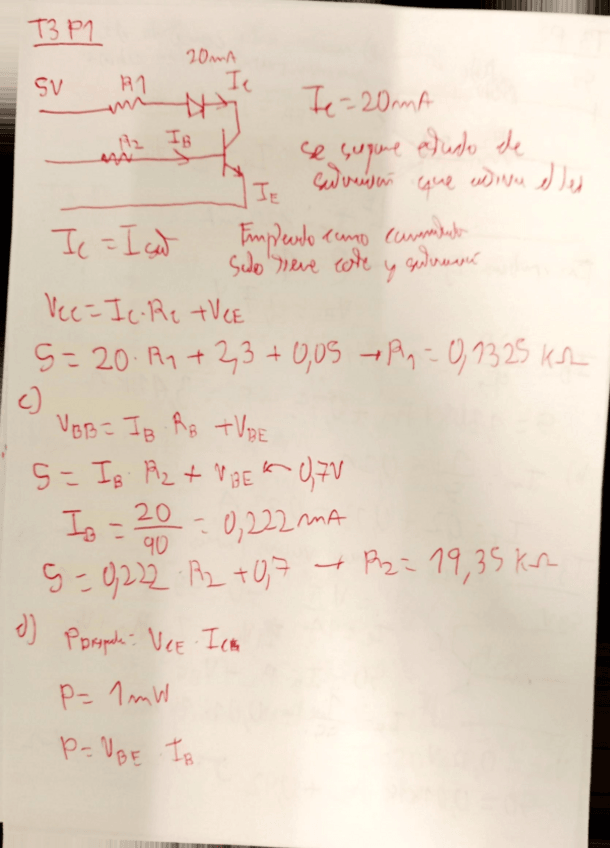 T3 P1
20mA
5V R1 Ic
R2 IB
IE
Ic = 20mA
se supone estado de
saturación que activa el led
Ic = Isat
Empleado como conmutador
solo tiene corte y saturación
Vcc = Ic·Rc + VCE
5 = 20·R1 + 2,3 + 0,05 → R1 = 0,1325 kΩ
c)
VBB = IB RB + VBE
5 = IB·R2 + VBE ← 0,7V
IB = 20/90 = 0,222 mA
5 = 0,222·R2 + 0,7 → R2 = 19,35 kΩ
d) VCE·Ic
P = 1mW
P = VBE IB